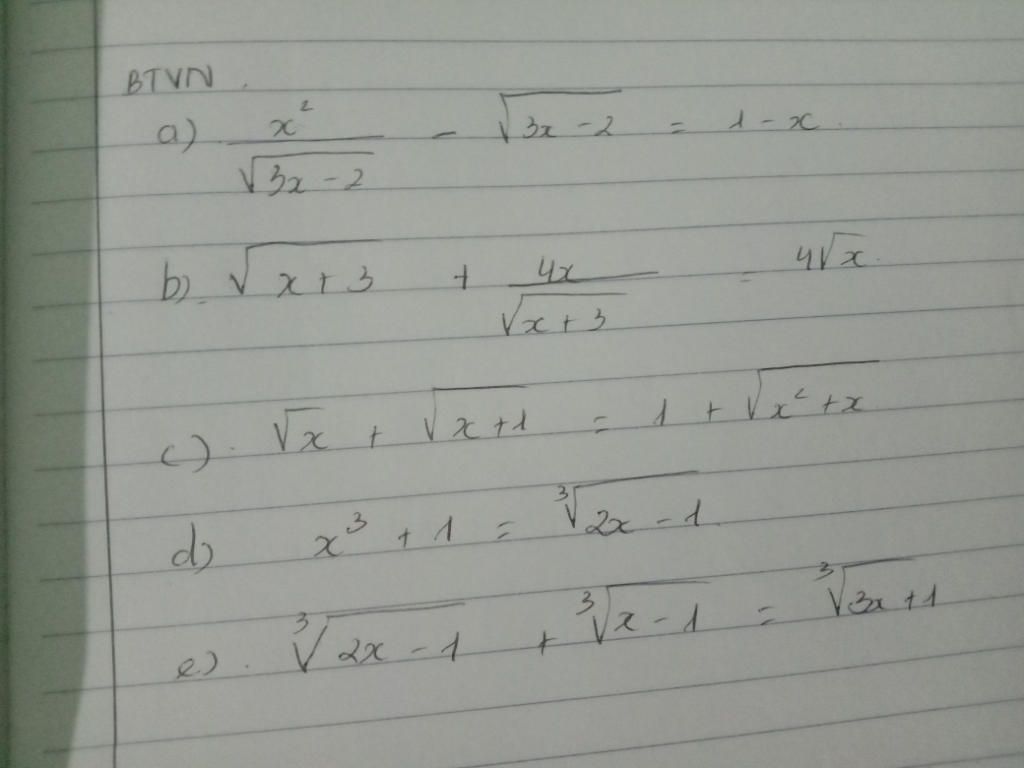 BTVN.
a) x²/√(3x-2) - √(3x-2) = 1-x.
b) √(x+3) + 4x/√(x+3) = 4√x.
c). √x + √(x+1) = 1 + √(x²+x)
d) x³ + 1 = ∛(2x-1)
e). ∛(2x-1) + ∛(x-1) = ∛(3x+1)